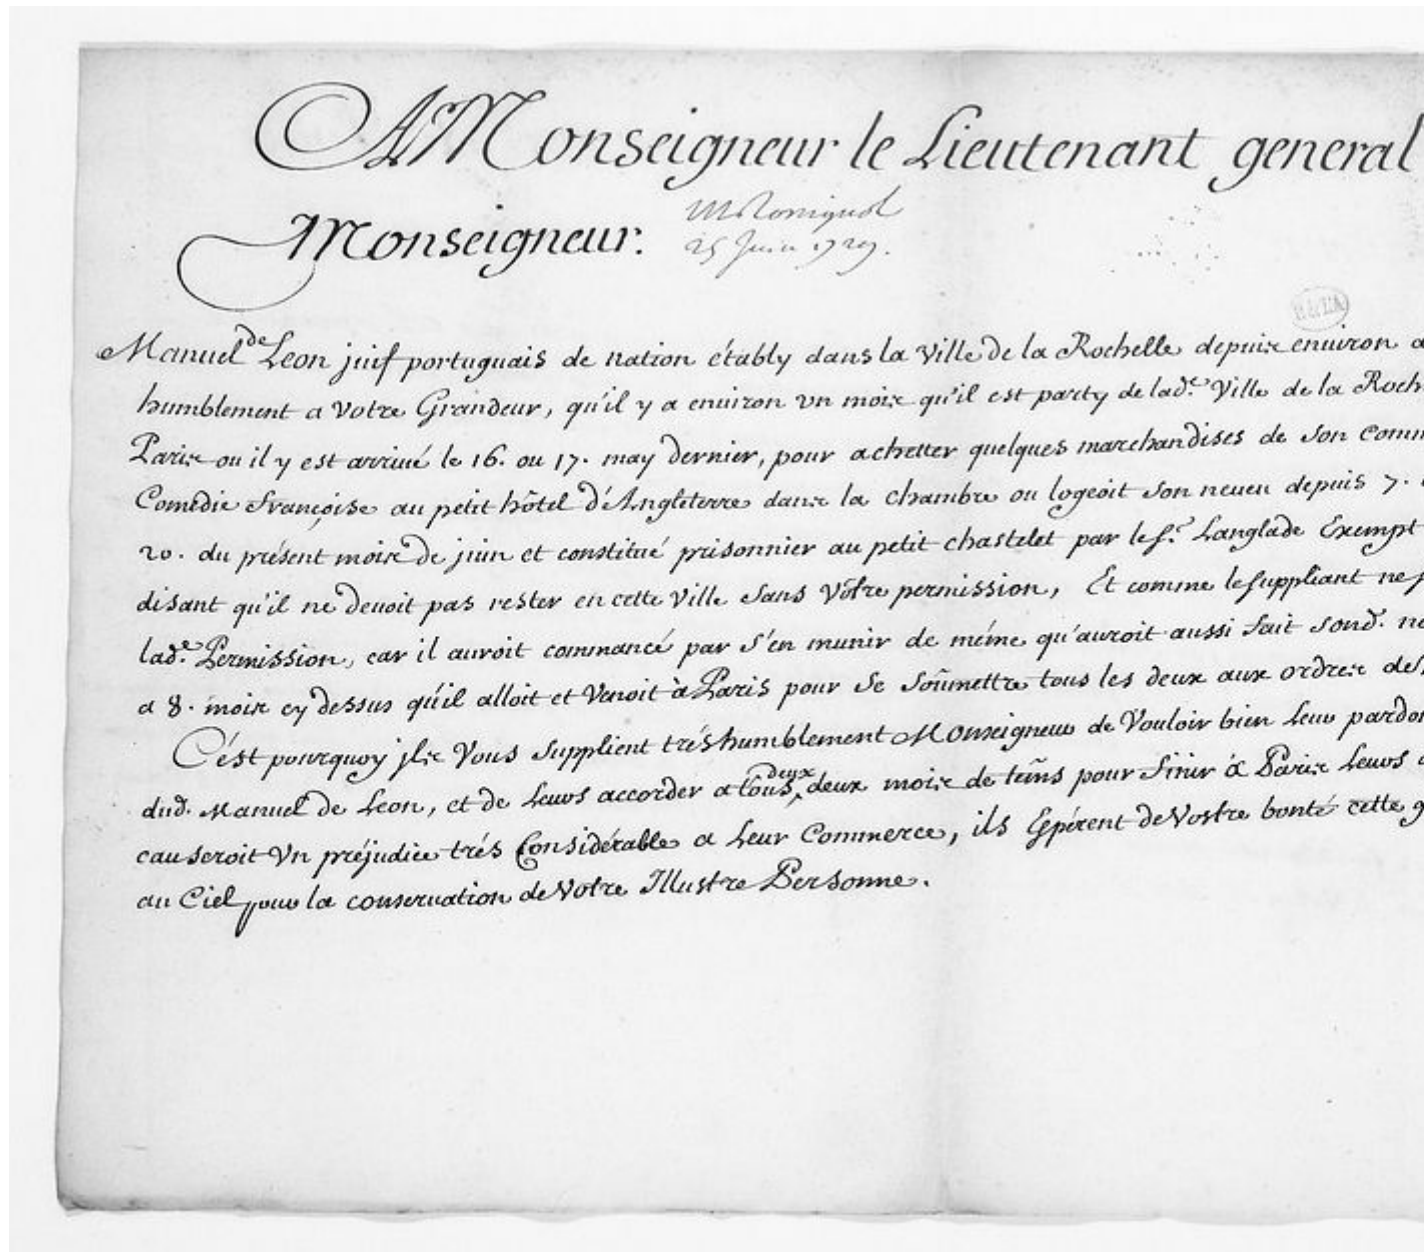 A Monseigneur le Lieutenant general
Monseigneur.
Mr Rossignol
25 Juin 1729.
Manuel de Leon juif portuguais de nation étably dans la Ville de la Rochelle depuis enuiron
humblement a Votre Grandeur, qu'il y a enuiron vn mois qu'il est party de lad.e Ville de la Roch
Paris ou il y est arriué le 16. ou 17. may dernier, pour achetter quelques marchandises de son Comm
Comedie françoise au petit hôtel d'Angleterre dans la chambre ou logeoit son neueu depuis 7.
20. du présent mois de juin et constitué prisonnier au petit chastelet par le s.r Langlade Exempt
disant qu'il ne deuoit pas rester en cette Ville sans Vôtre permission, Et comme le suppliant ne
lad.e Permission, car il auroit commancé par s'en munir de méme qu'auroit aussi fait sond. ne
a 8. mois cy dessus qu'il alloit et Venoit à Paris pour se soûmettre tous les deux aux ordres de
C'ést pourquoy jls Vous supplient trés humblement Monseigneur de Vouloir bien leur pardon
dud. Manuel de Leon, et de leurs accorder a tous deux deux mois de tems pour finir à Paris leurs
causeroit Vn préjudice trés Considérable a leur Commerce, ils Espérent de Vostre bonté cette g
au Ciel pour la conseruation de Votre Illustre Personne.